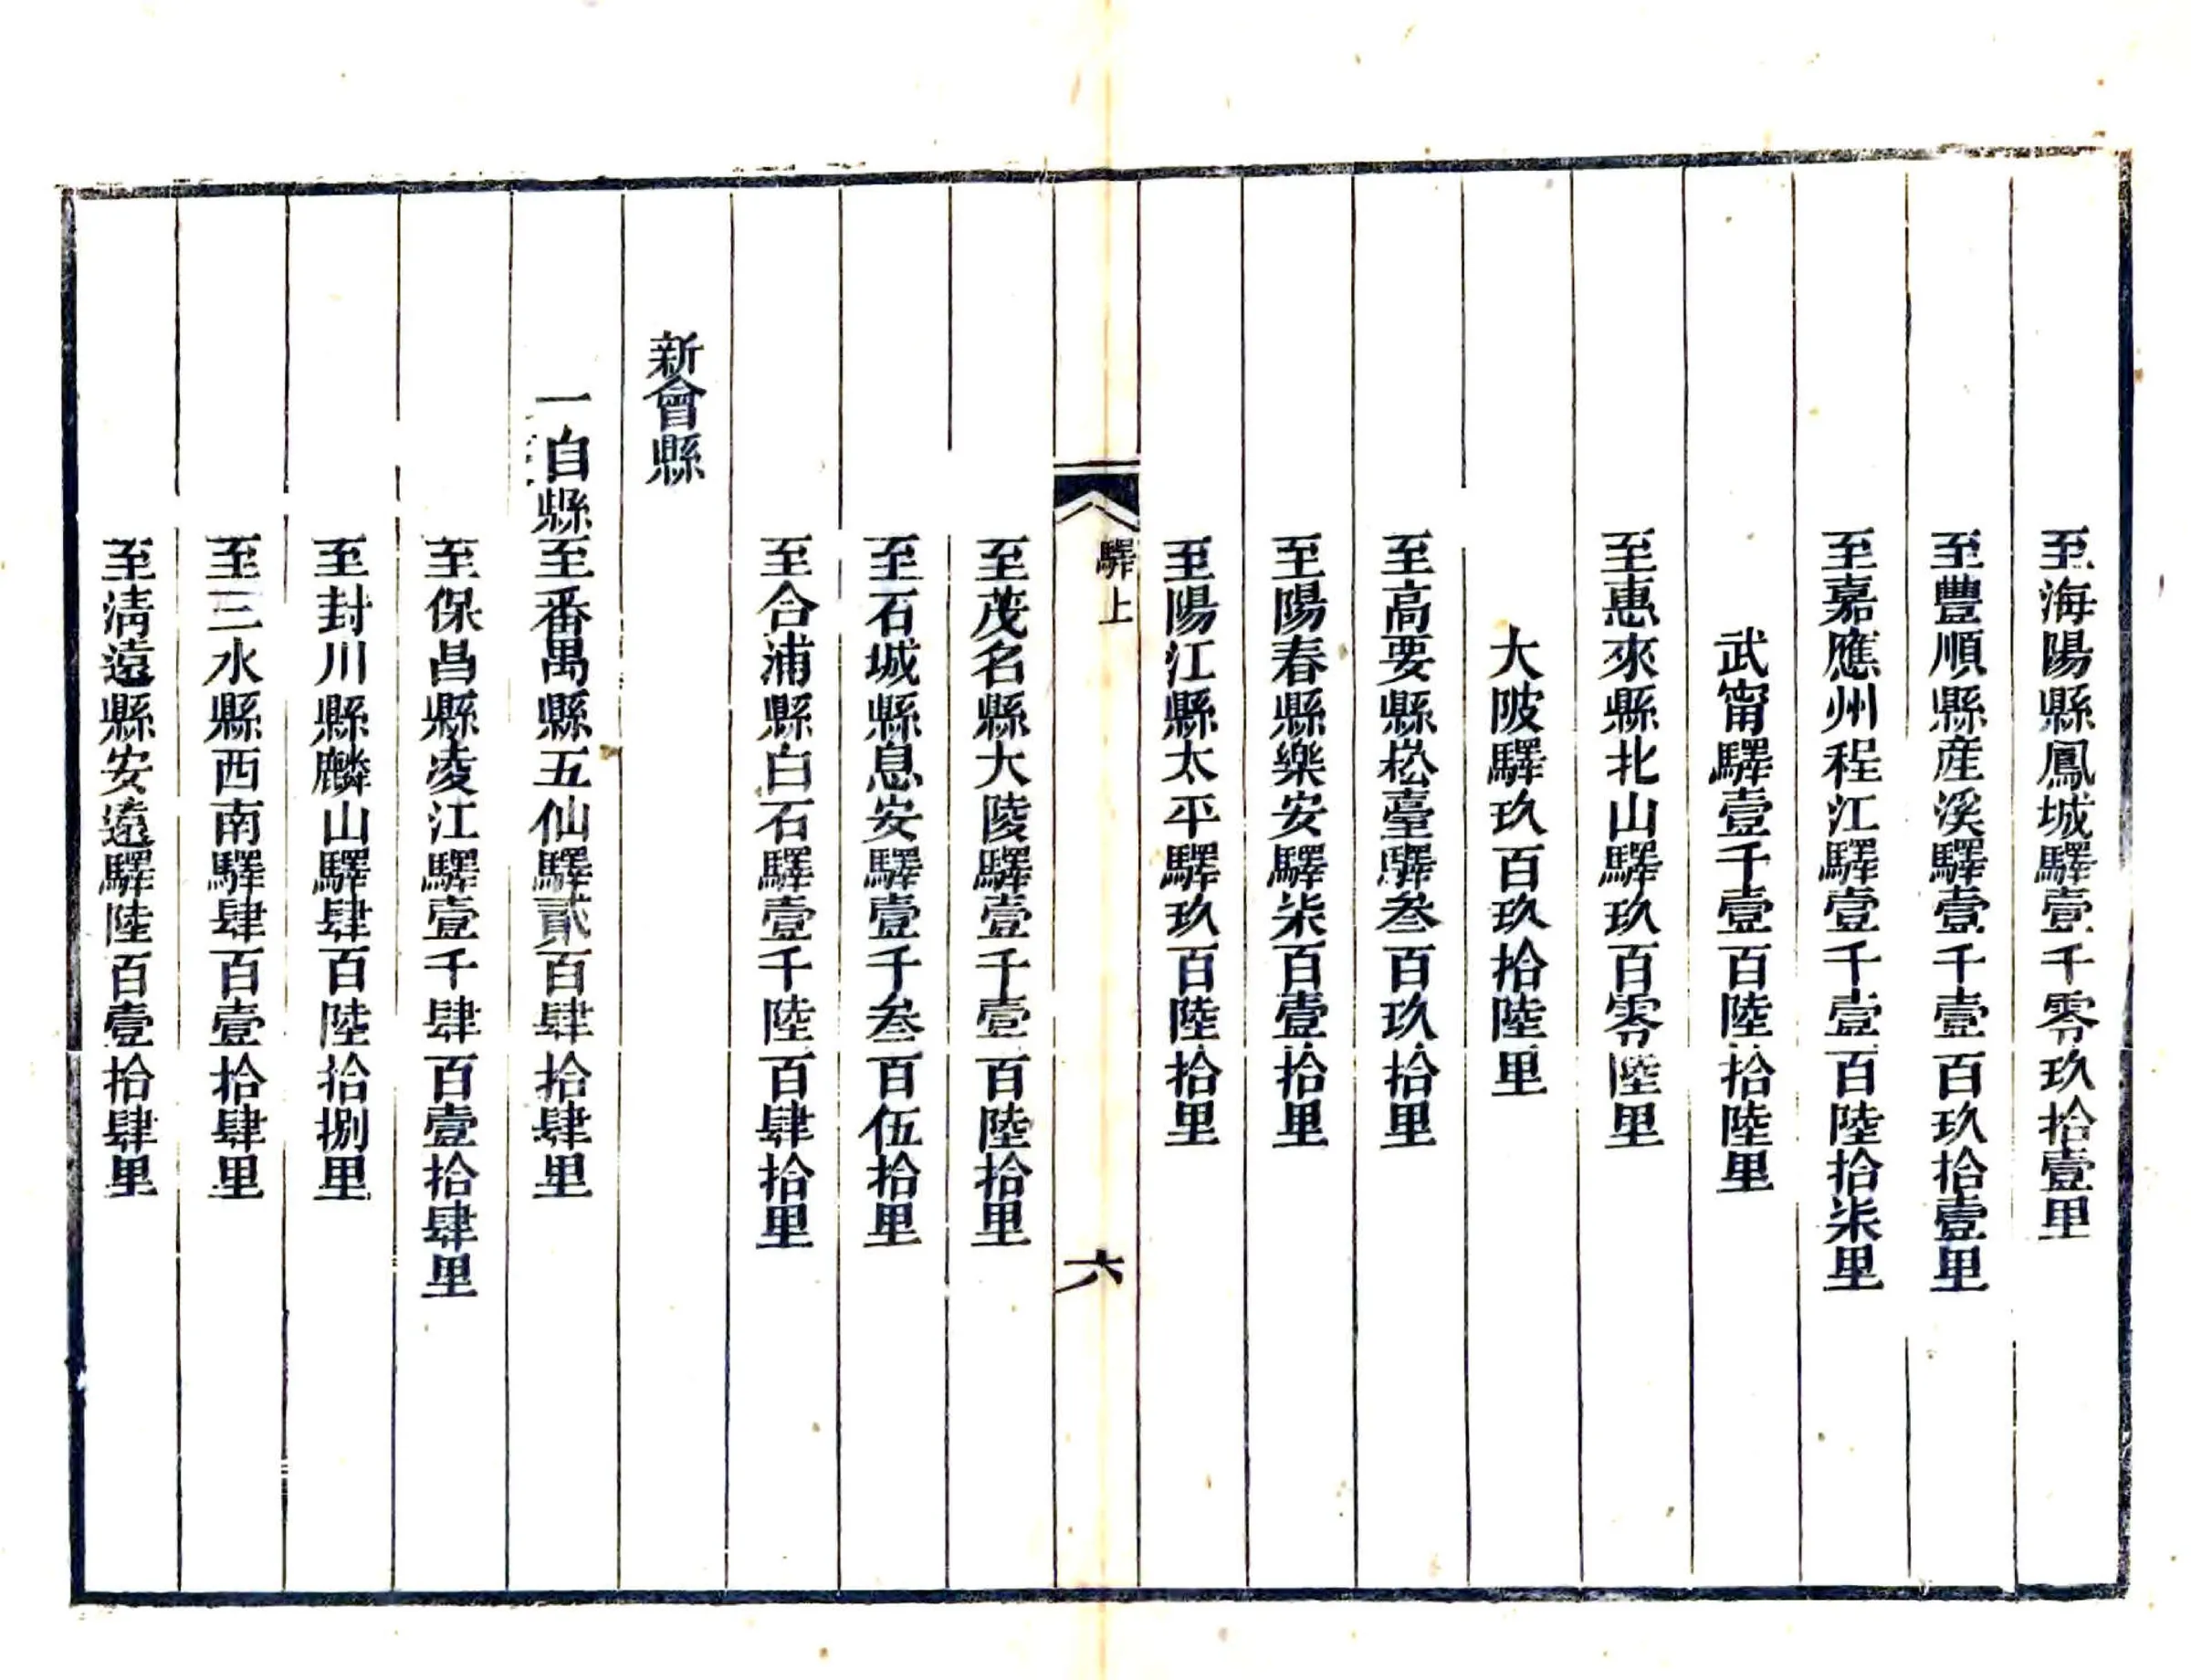 至海陽縣鳳城驛壹千零玖拾壹里
至豐順縣産溪驛壹千壹百玖拾壹里
至嘉應州程江驛壹千壹百陸拾柒里
武甯驛壹千壹百陸拾陸里
至惠來縣北山驛玖百零陸里
大陂驛玖百玖拾陸里
至高要縣崧臺驛叁百玖拾里
至陽春縣樂安驛柒百壹拾里
至陽江縣太平驛玖百陸拾里
驛上
六
至茂名縣大陵驛壹千壹百陸拾里
至石城縣息安驛壹千叁百伍拾里
至合浦縣白石驛壹千陸百肆拾里
新會縣
一自縣至番禺縣五仙驛貳百肆拾肆里
至保昌縣凌江驛壹千肆百壹拾肆里
至封川縣麟山驛肆百陸拾捌里
至三水縣西南驛肆百壹拾肆里
至清遠縣安遠驛陸百壹拾肆里